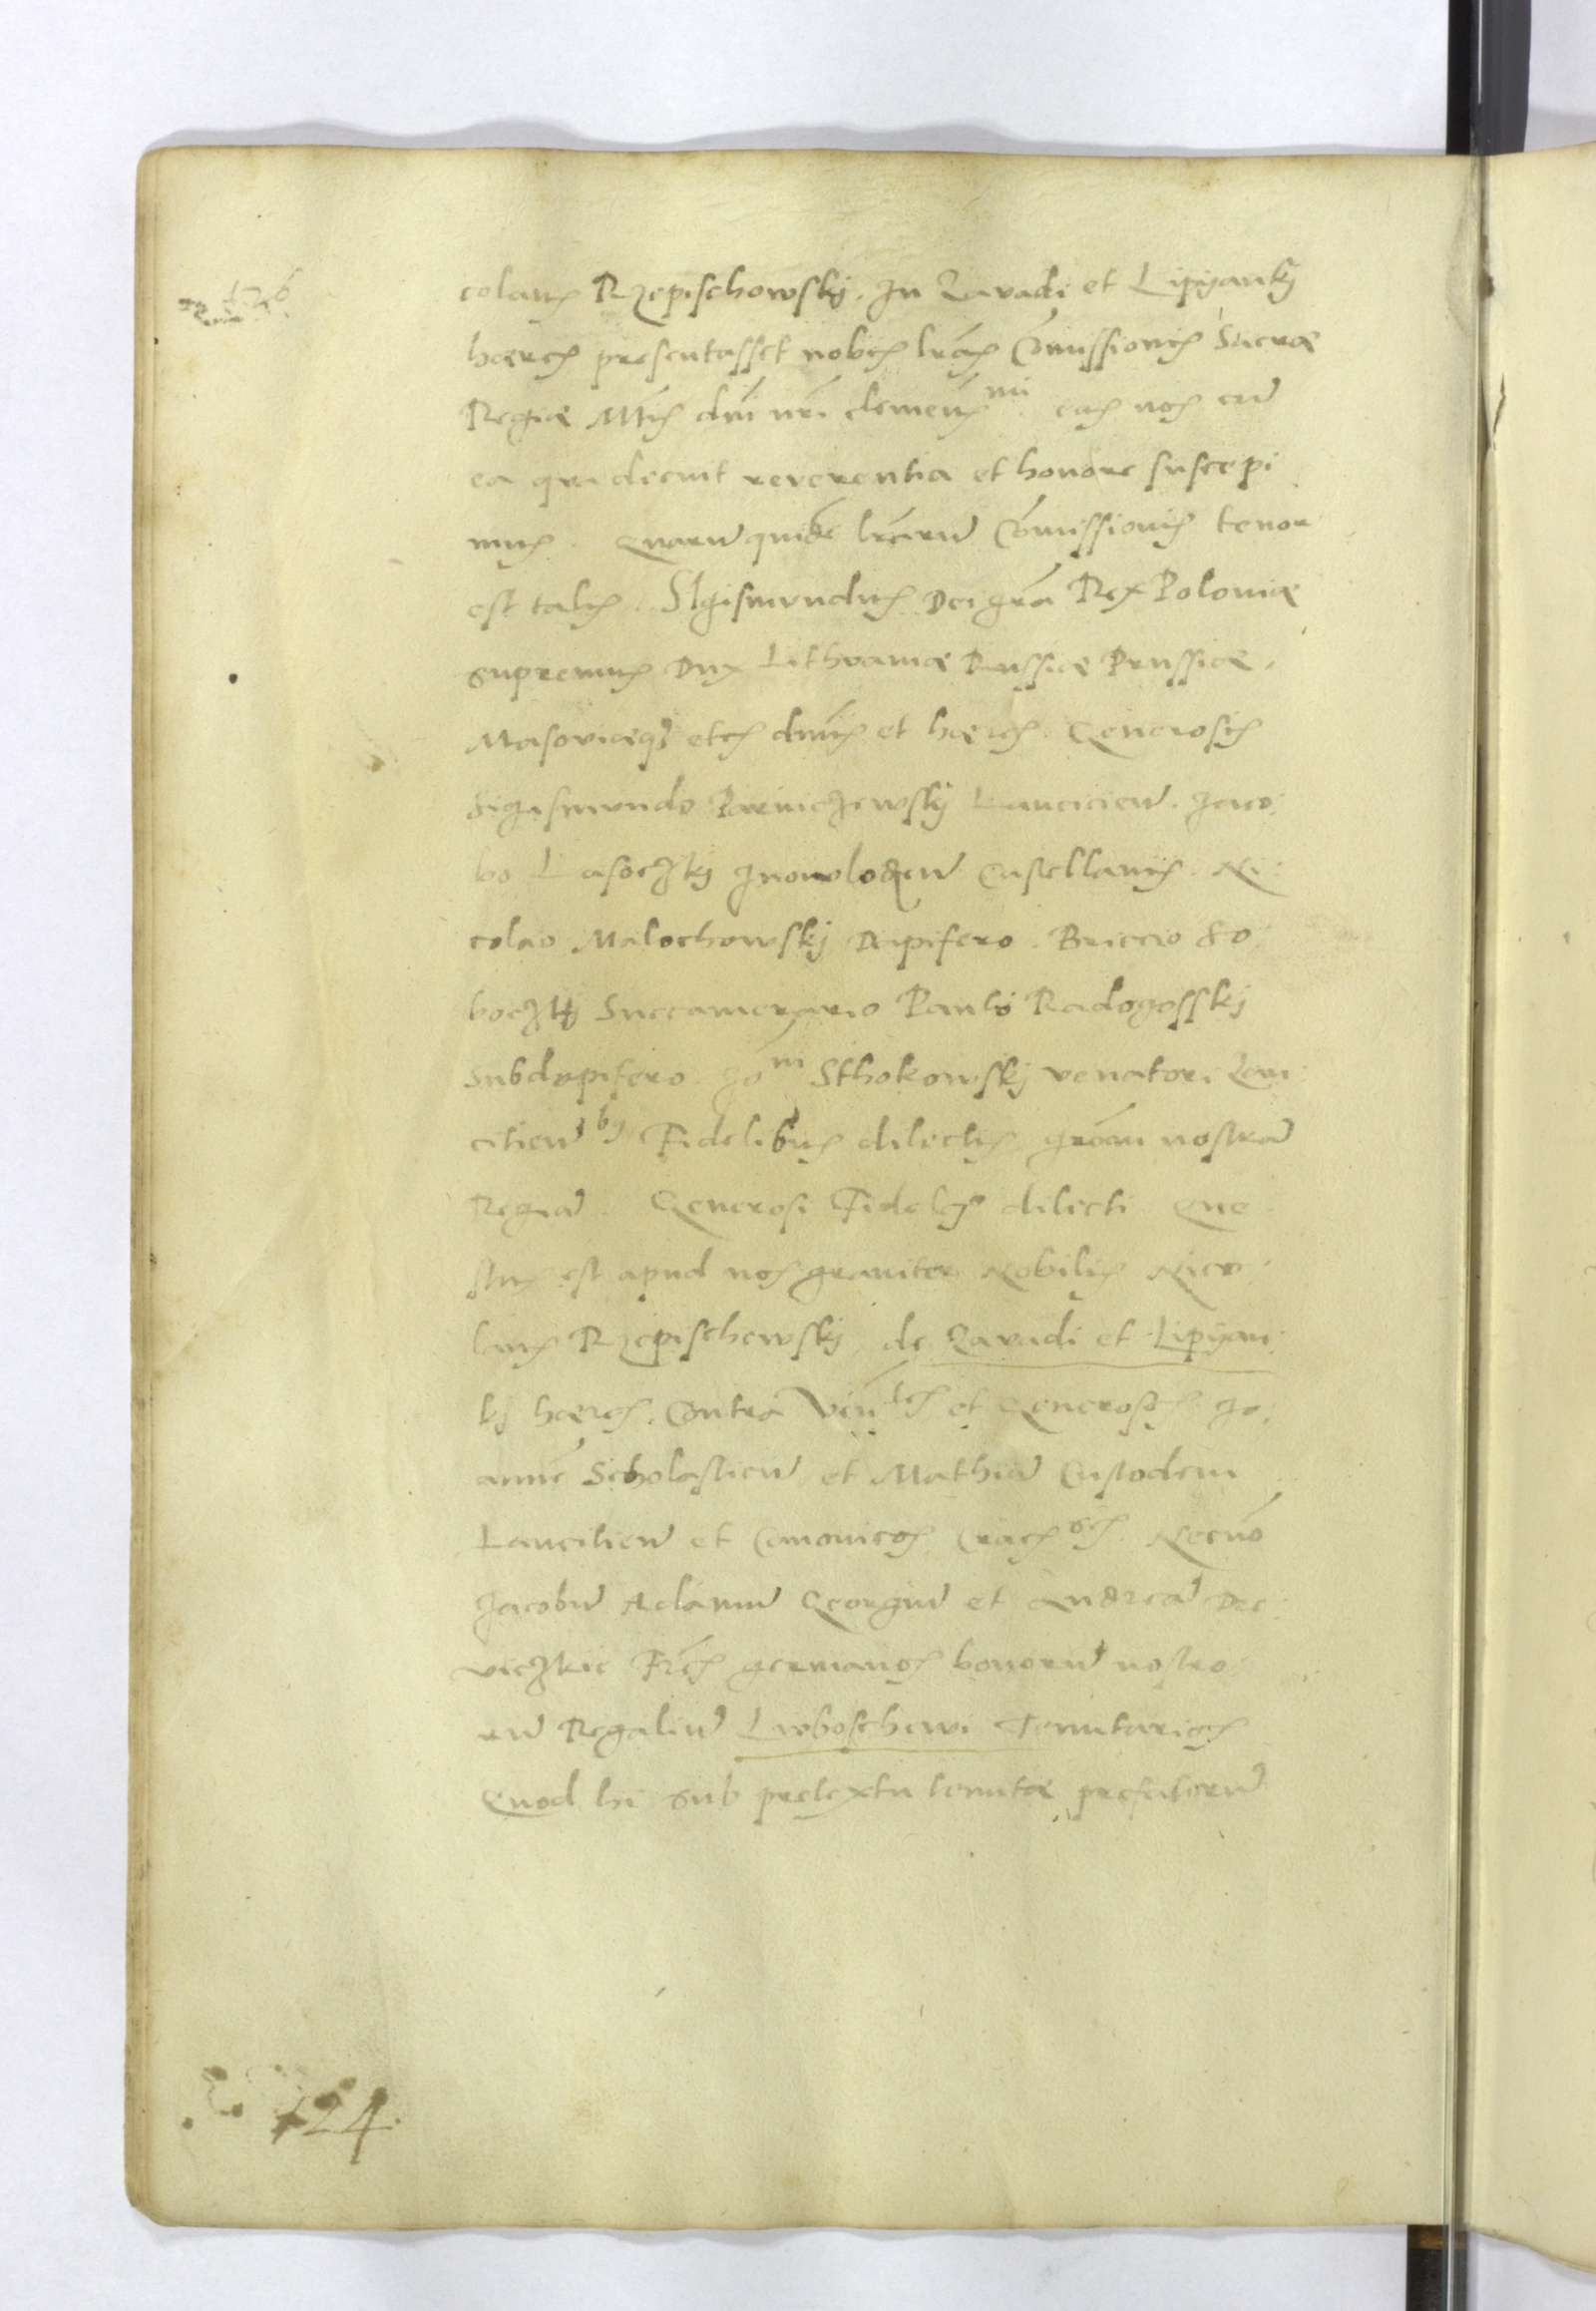 126
colaus Rzepischowskj. In Zavadi et Lipyankj
haeres presentasset nobis lrãs Cõmissionis Sacrae
Regiae Mtis dni nri clementis mi eas nos cũ
ea qua decuit reverentia et honore suscepi
mus. Quarũ quidẽ lrarũ Cõmissionis tenor
est talis. SIgismundus Dei grã Rex Poloniae
supremus Dux Lithvaniae Russiae Prussiae.
Masoviaeqʒ etcs dnus et haeres. Generosis
Sigismundo Parniczewskj Lancicien̄. Jaco:
bo Lasoczkj Jnowlodzen̄ Castellanis. Ni:
colao Malochowskj Dapifero. Briccio So:
boczkj Succamerario Paulo Radogosskj
Subdapifero Jo ni Sthokowskj venatori Lan:
citien̄ bʒ Fidelibus dilectis grãm nostrã
Regiã. Generosi Fideles dilecti. Que
stus est apud nos graviter Nobilis Nico:
laus Rzepischewskj de Zavadi et Lipyan:
kj haeres. Contra Ven les et Generosos Jo:
annẽ Scholasticũ et Mathiã Custodem
Lancitien̄ et Canonicos Crac oes. Necnõ
Jacobũ Adamũ Georgiũ et Andreã Dre:
viczkie Frẽs germanos bonorũ nostro:
rũ Regaliũ Lwboschewi Tenutarios
Quod hi sub pretextu tenutae prefatorũ
124.